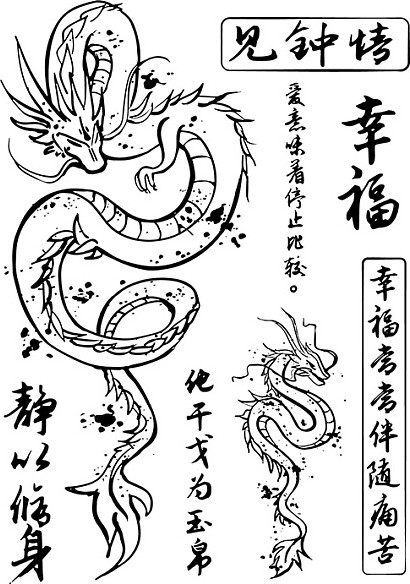 见钟情
幸福
爱意味着停止比较。
幸福常常伴随痛苦
静以修身
化干戈为玉帛